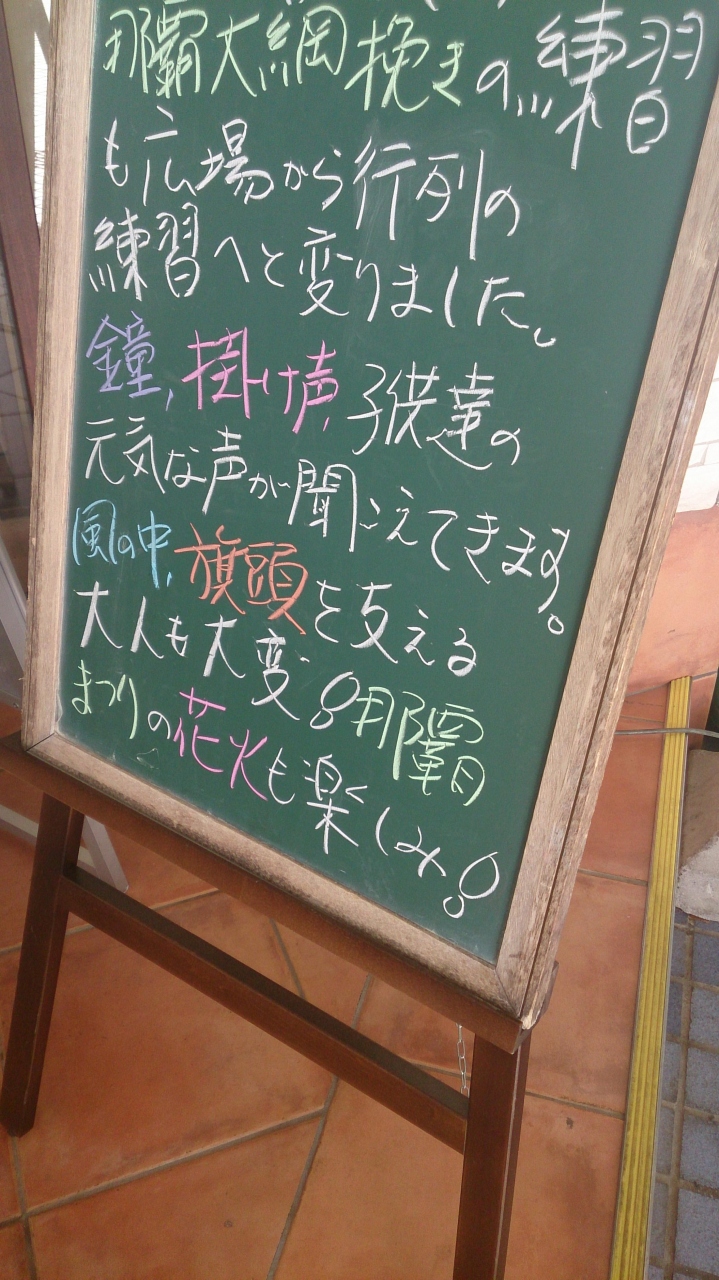 那覇大綱挽きの練習
も広場から行列の
練習へと変りました。
鐘、掛け声、子供達の
元気な声が聞こえてきます。
風の中、旗頭を支える
大人も大変!那覇
まつりの花火も楽しみ!